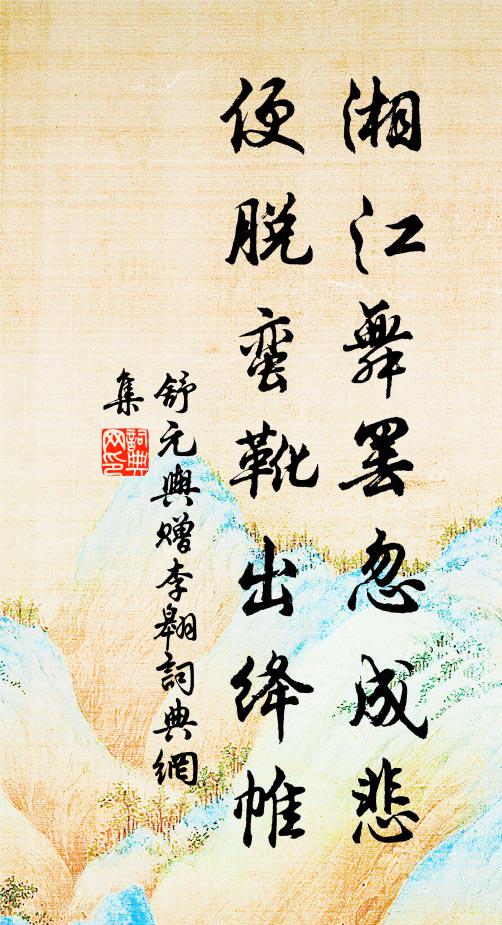 湘江舞罢忽成悲
便脱蛮靴出绛帷
舒元舆赠李翱詞典網
集
詞典網印